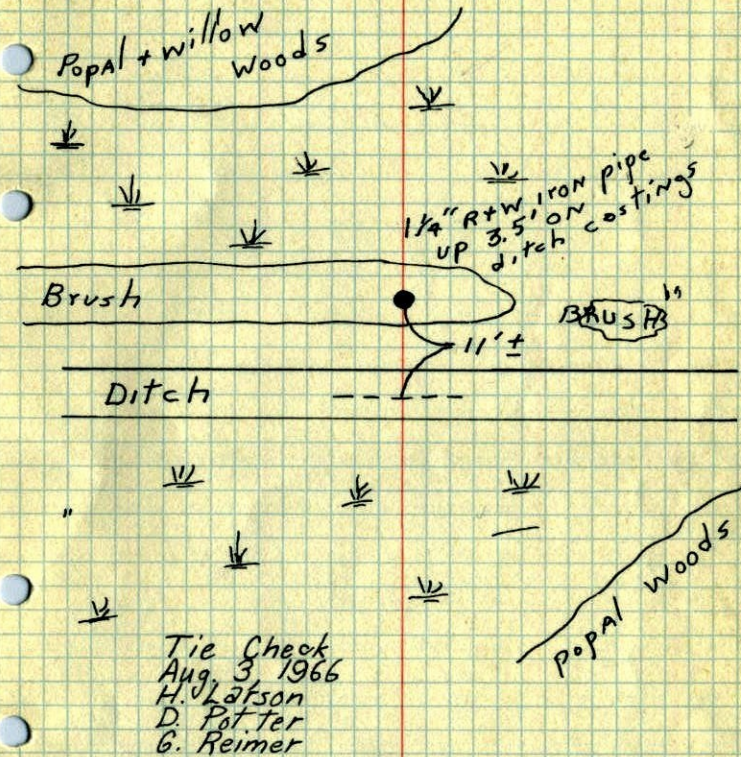 Popal + willow
woods
1¼" R+W iron pipe
up 3.5' on
ditch costings
Brush
BRUSH
11' ±
Ditch
popal woods
Tie Check
Aug. 3 1966
H. Larson
D. Potter
G. Reimer